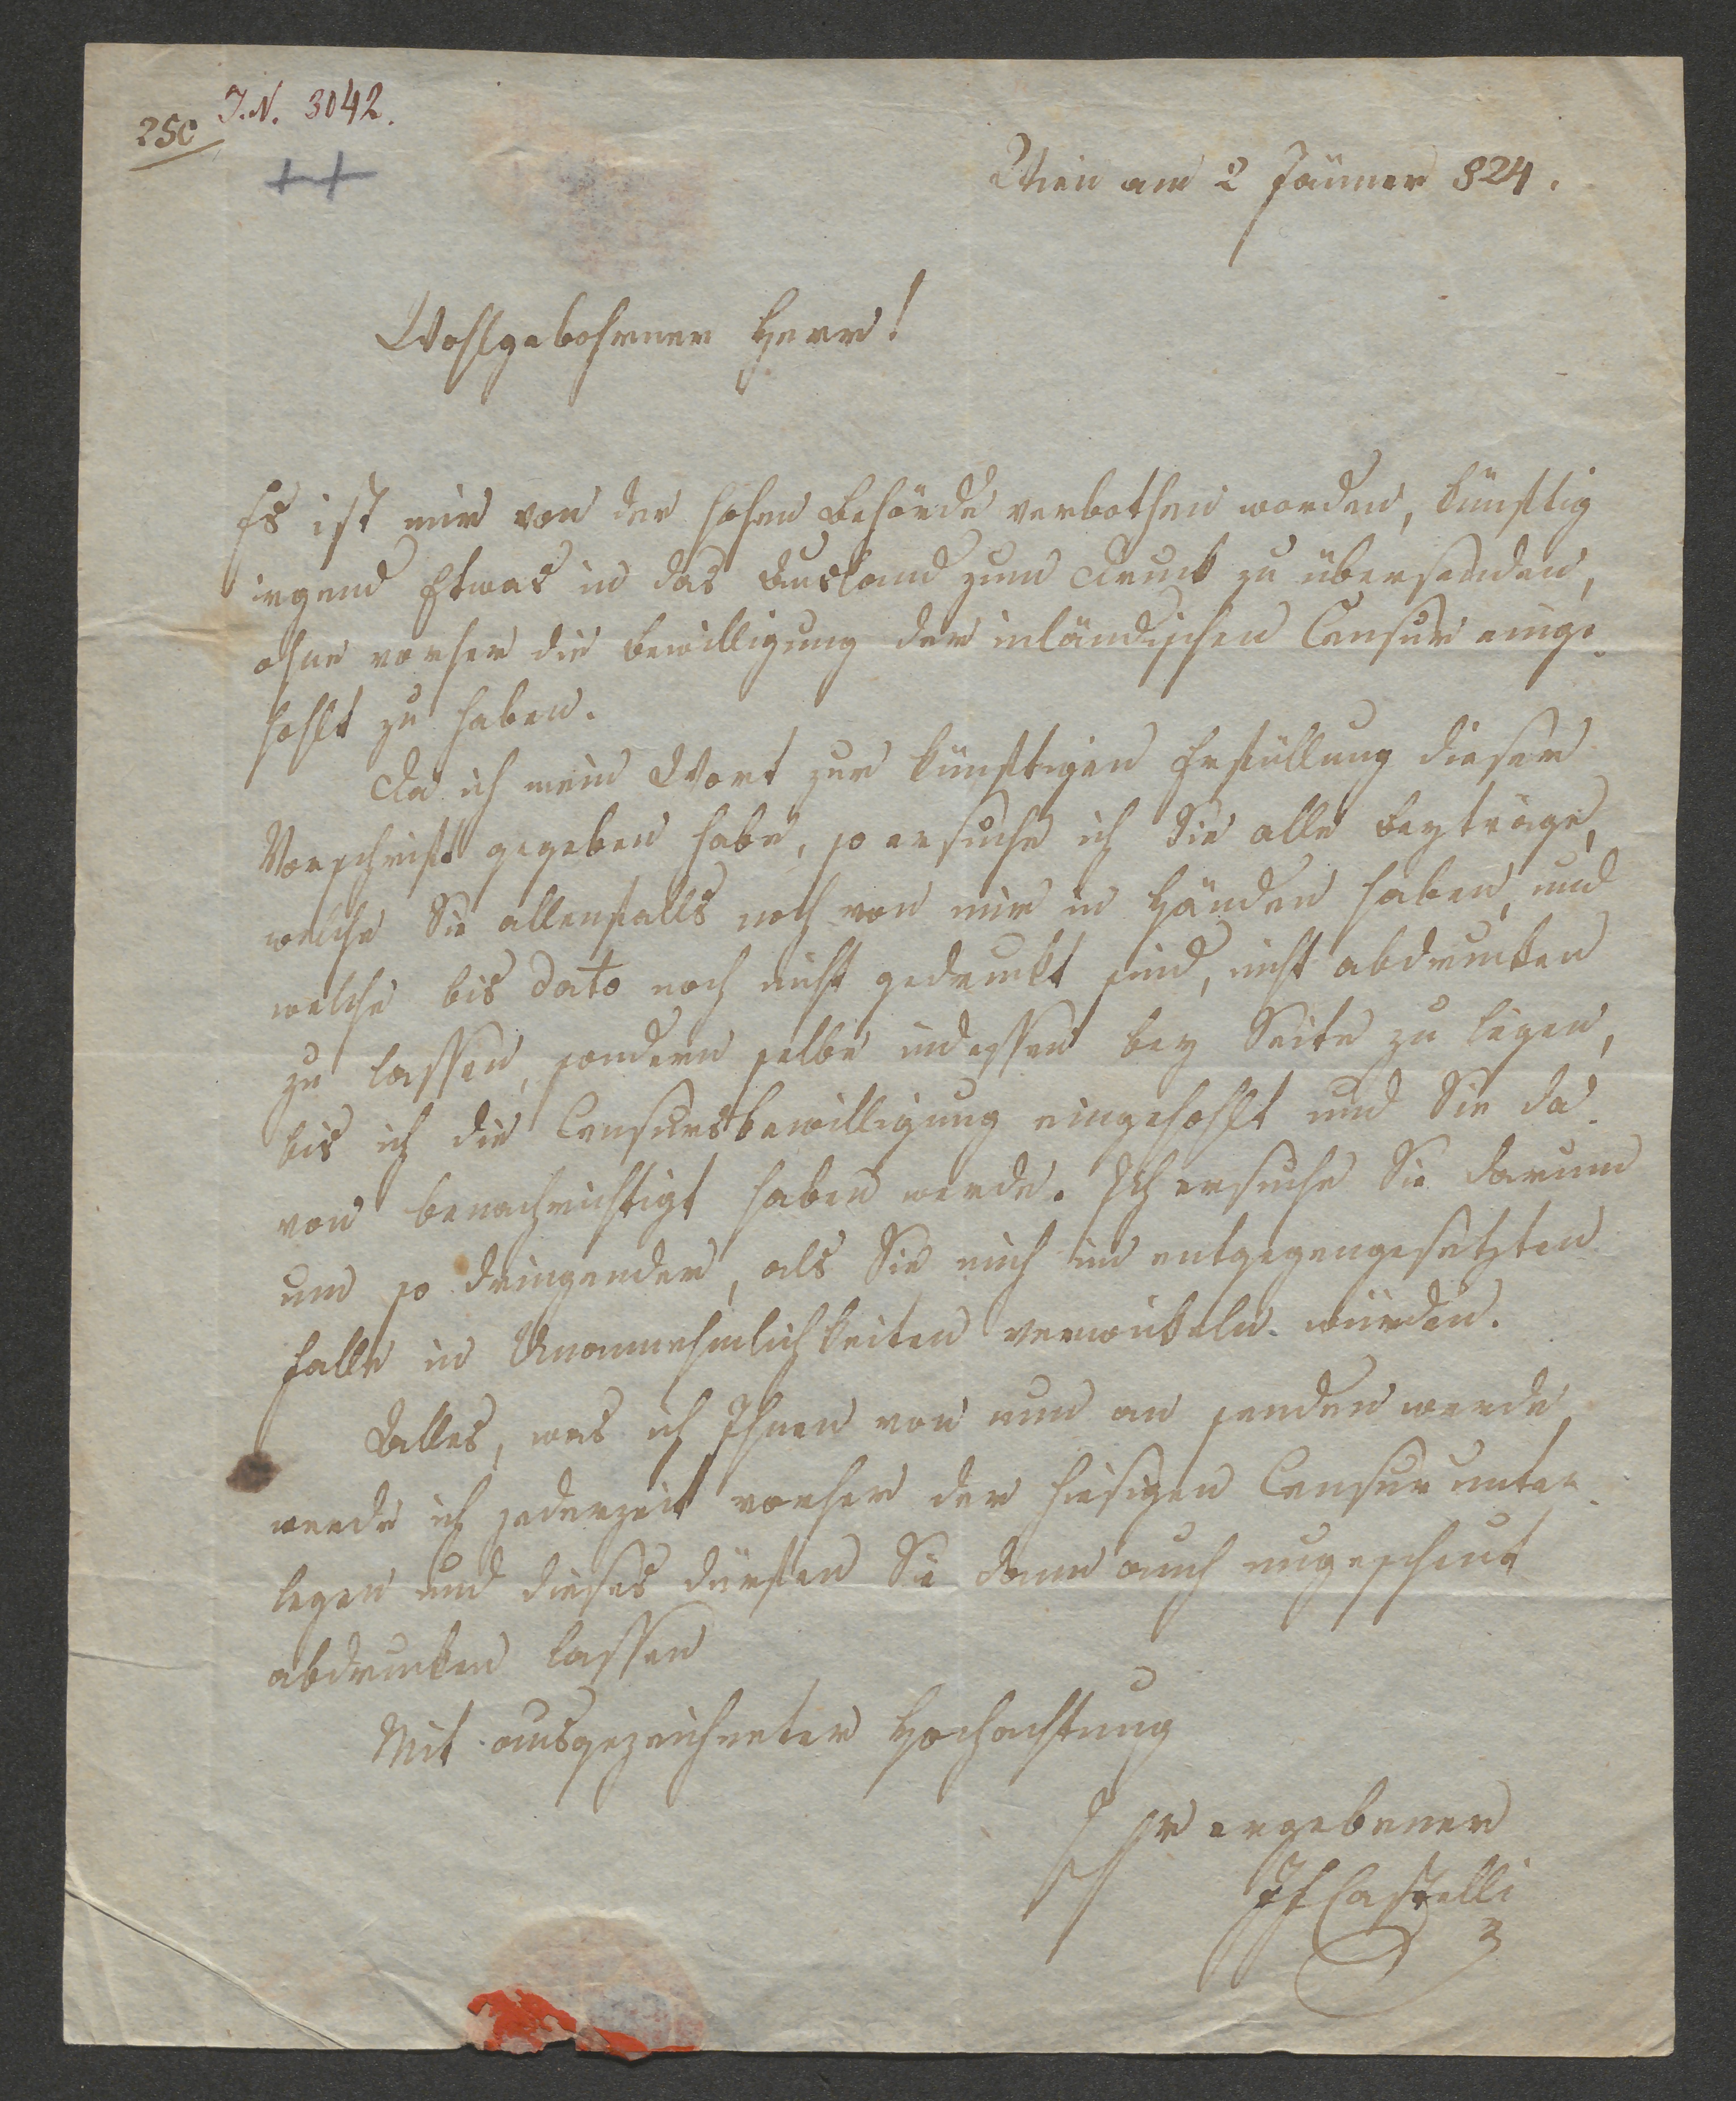 I.N. 3042.
250
Wien am 2 Jänner 824.
Wohlgebohrner Herr!
Es ist mir von der hohen Behörde verbothen worden, künftig
irgend Etwas in das Ausland zum Druck zu übersenden,
ohne vorher die Bewilligung der inländischen Censur einge-
hohlt zu haben.
Da ich mein Wort zur künftigen Erfüllung dieser
Vorschrift gegeben habe, so ersuche ich Sie alle Beyträge,
welche Sie allenfalls noch von mir in Händen haben, und
welche bis dato noch nicht gedruckt sind, nicht abdrucken
zu lassen, sondern selbe indessen bey Seite zu legen,
bis ich die Censursbewilligung eingehohlt und Sie da-
von benachrichtigt haben werde. Ich ersuche Sie darum
um so dringender, als Sie mich im entgegengesetzten
Falle in Unannehmlichkeiten verwickeln würden.
Alles, was ich Ihnen von nun an senden werde,
werde ich jederzeit vorher der hiesigen Censur unter-
legen und dieses dürfen Sie dann auch ungescheut
abdrucken lassen
Mit ausgezeichneter Hochachtung
Ihr ergebener
IF Castelli